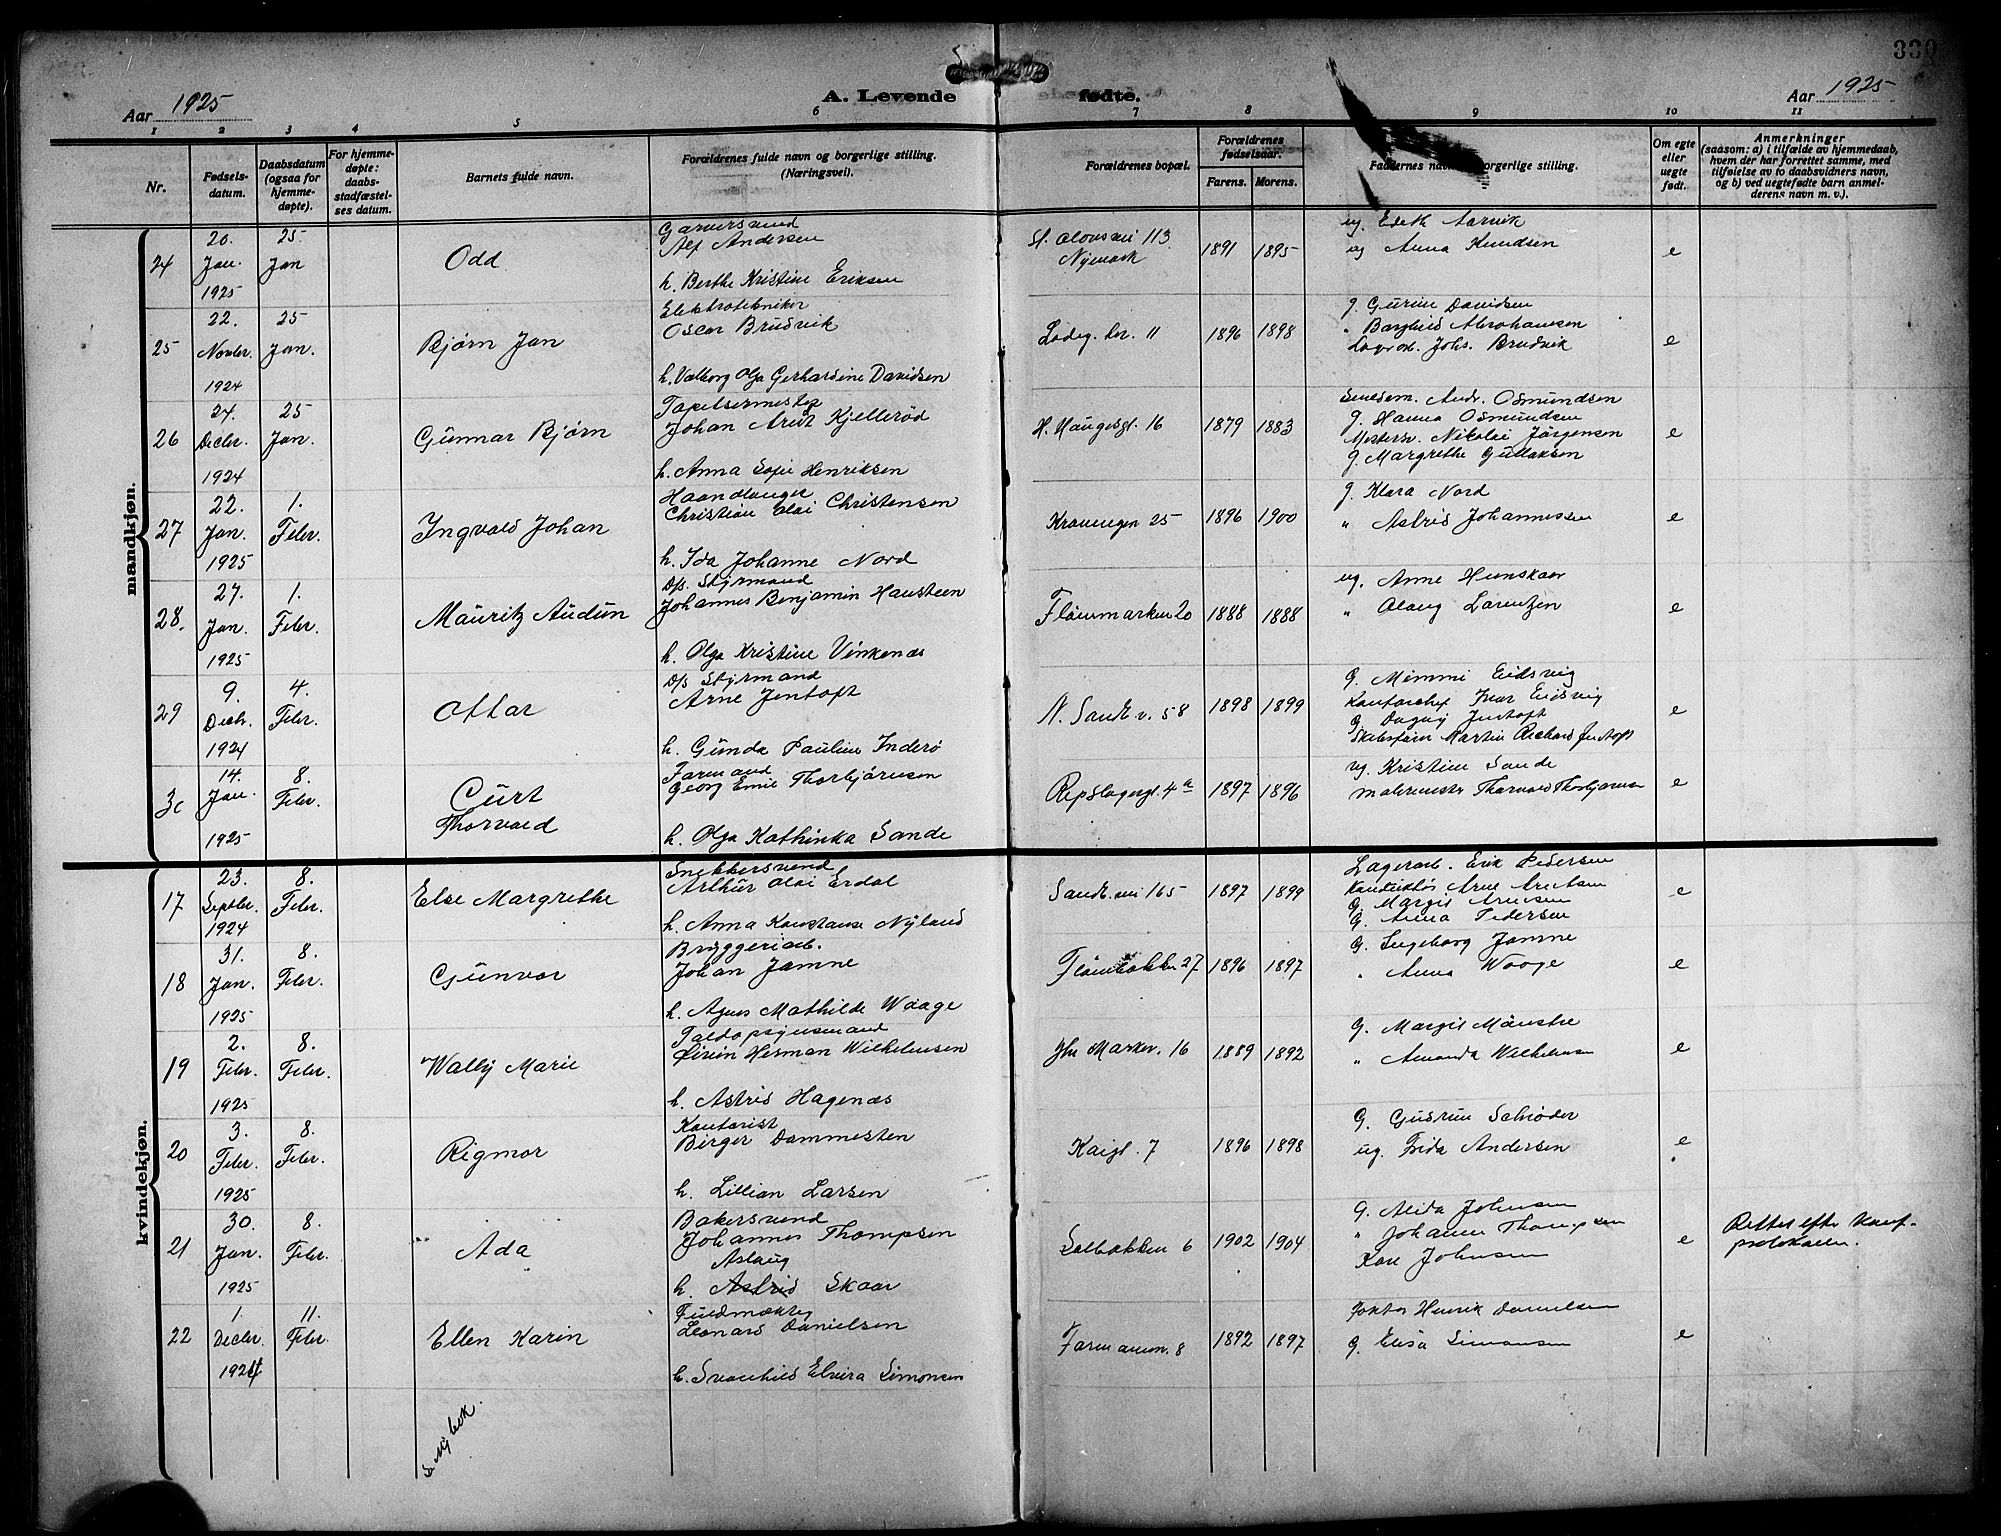 330
Aar 1925
A. Levende fødte.
Aar 1925
1 2 3 4 5 6 7 8 9 10 11
Nr.
Fødsels-
datum.
Daabsdatum
(ogsaa for
hjemme-
døpte).
For hjemme-
døpte:
daabs-
stadfæstel-
ses datum.
Barnets fulde navn.
Forældrenes fulde navn og borgerlige stilling.
(Næringsvei).
Forældrenes bopæl.
Forældrenes
fødselsaar.
Farens. Morens.
Faddernes navn borgerlige stilling.
Om egte
eller
uegte
født.
Anmerkninger
(saasom: a) i tilfælde av hjemmedaab,
hvem der har forrettet samme, med
tilføielse av to daabsvidners navn,
og b) ved uegtefødte barn anmel-
derens navn m. v.).
mandkjøn.
24
20.
Jan.
1925
25
Jan
Odd
Garversvend
Alf Andersen
h. Berthe Kristine Eriksen
St. Olavsvei 113
Nymark
1891 1895
ug. Edith Aarvik
ug Anna Knudsen
e
25
22.
Novbr.
1924
25
Jan.
Bjørn Jan
Elektrotekniker
Oscar Brudvik
h. Valborg Olga Gerhardine Davidsen
Ladeg. br. 11
1896 1898
g. Gurine Davidsen
" Borghild Abrahamsen
Johs. Brudvik
e
26
24.
Decbr.
1924
25
Jan.
Gunnar Bjørn
Tapetsermester
Johan Arnt Kjellerød
h. Anna Sofie Henriksen
H. Haugesgt. 16
1879 1883
Andr. Osmundsen
g. Hanna Osmundsen
Nikolai Jørgensen
g. Margrethe Gullaksen
e
27
22.
Jan.
1925
1.
Febr.
Ingvald Johan
Haandlanger
Christian Olai Christensen
h. Ida Johanne Nord
Kroningen 25
1896 1900
g. Klara Nord
" Astrid Johannessen
e
28.
27.
Jan.
1925
1.
Febr.
Mauritz Audun
D/s. Styrmand
Johannes Benjamin Hansteen
h. Olga Kristine Vinkenæs
Fløenmarken 20
1888 1888
ug. Anne Hunskaar
" Olaug Larentzen
e
29
9.
Decbr.
1924
4.
Febr.
Ottar
D/s Styrmand
Arne Jentoft
h. Gunda Pauline Inderø
N. Sandv. v. 58
1898 1899
G. Mimmi Eidsvig
Kontorchef Ivar Eidsvig
G. Dagny Jentoft
Martin Richard Jentoft
e
30
14.
Jan.
1925
8.
Febr.
Curt
Thorvald
Formand
Georg Emil Thorbjørnsen
h. Olga Kathinka Sande
Repslagergt. 4a
1897 1896
ug. Kristine Sande
Malermester Thorvald Thorbjørnsen
e
kvindekjøn.
17
23.
Septbr.
1924
8.
Febr.
Else Margrethe
Snekkersvend
Arthur Olai Erdal
h. Anna Konstanse Nyland
Sandv. vei 165
1897 1899
Lagerarb. Erik Pedersen
Konduktør Arne Arntsen
G. Margit Arntsen
G. Anna Pedersen
e
18
31.
Jan.
1925
8.
Febr.
Gunvor
Bryggeriarb.
Johan Jamne
h. Agnes Mathilde Waage
Fløenbakken 27
1896 1897
G. Ingeborg Jamne
" Anna Waage
e
19
2.
Febr.
1925
8.
Febr.
Wally Marie
Toldopsynsmand
Øivin Herman Wilhelmsen
h. Astrid Hagenæs
Markev. 16
1889 1892
G. Margit Monstre
" Amanda Wilhelmsen
e
20
3.
Febr.
1925
8.
Febr.
Rigmor
Kontorist
Birger Dammesten
h. Lillian Larsen
Kaigt. 7
1896 1898
G. Gudrun Schrøder
ug. Frida Andersen
e
21
30.
Jan.
1925
8.
Febr.
Ada
Bakersvend
Johannes Thompsen
Aslaug
h. Astrid Skaar
Solbakken 6
1902 1904
G. Alida Johnsen
" Johanne Thompsen
Kare Johnsen
e
Rettet efter Konf-
protokollen.
22
1.
Decbr.
1924
11.
Febr.
Ellen Karin
Fuldmægtig
Leonard Danielsen
h. Svanhild Elvira Simonsen
Formannsv. 8
1892 1897
Doktor Henrik Danielsen
G. Elisa Simonsen
e